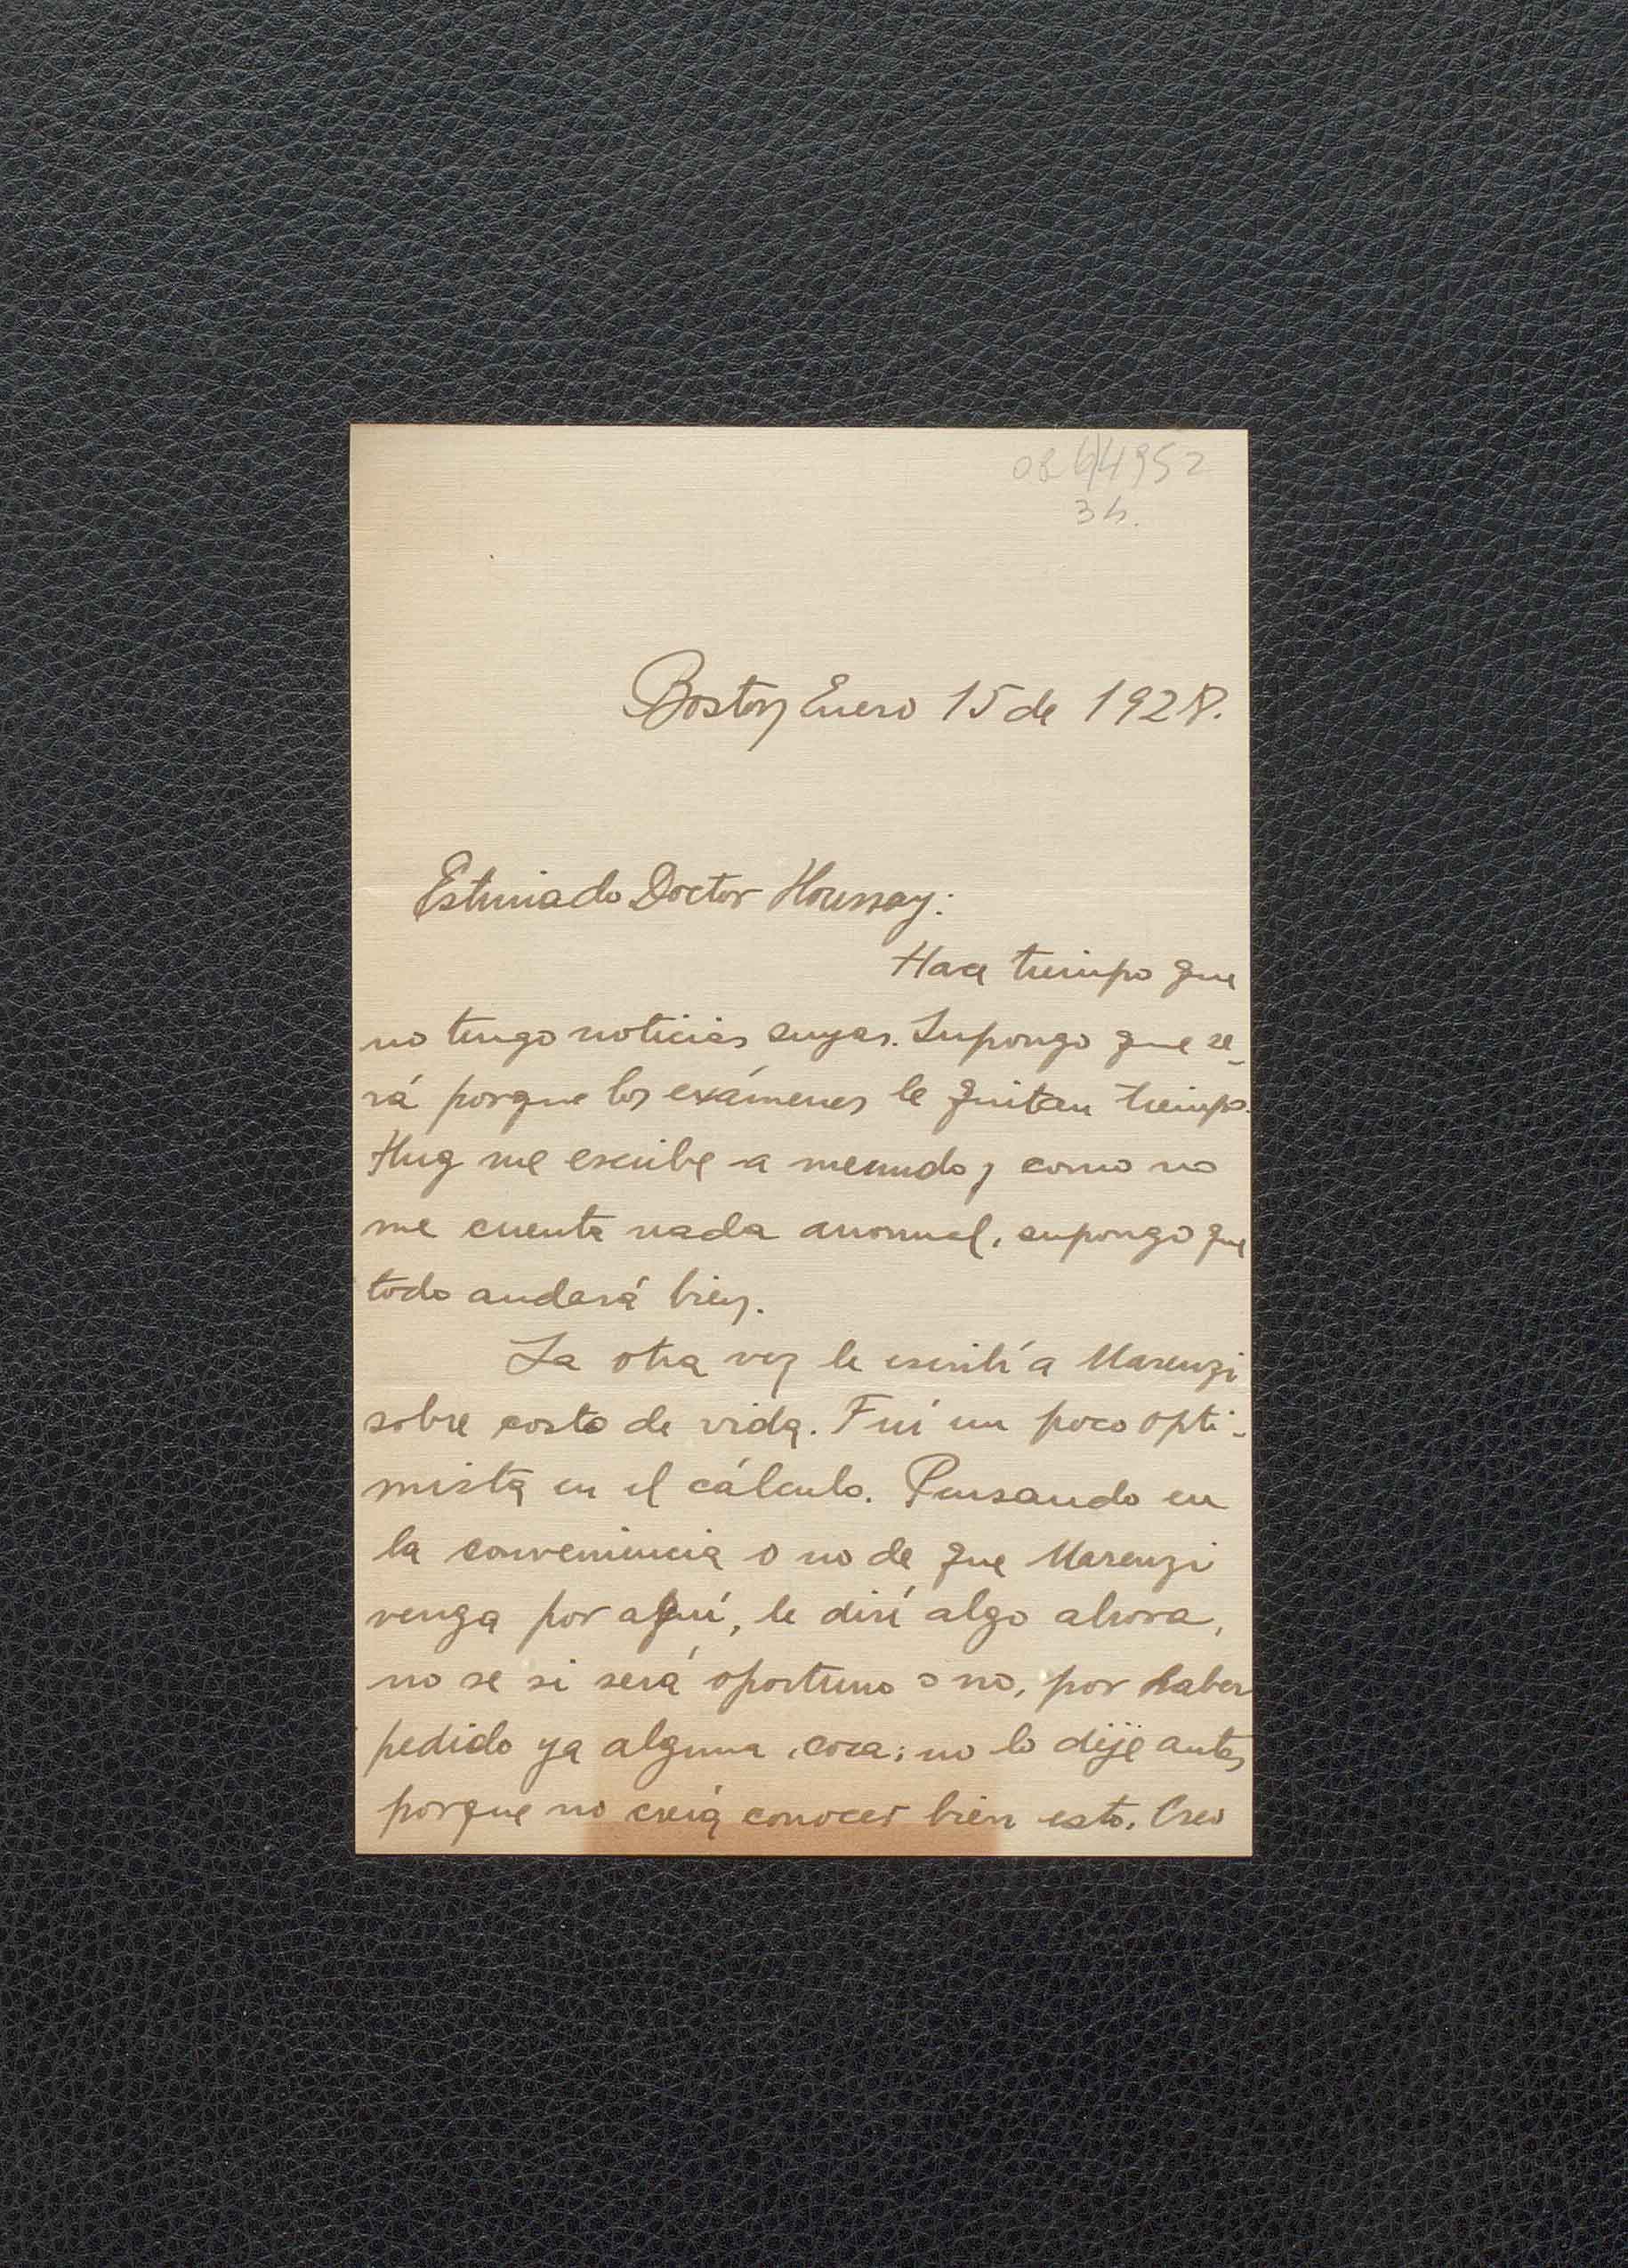 086/4952
3h.
Boston Enero 15 de 1928.
Estimado Doctor Houssay:
Hace tiempo que
no tengo noticias suyas. Supongo que se-
rá porque los exámenes le quitan tiempo.
Hug me escribe a menudo y como no
me cuenta nada anormal, supongo que
todo andará bien.
La otra vez le escribí a Marenzi
sobre costo de vida. Fuí un poco opti-
mista en el cálculo. Pensando en
la conveniencia o no de que Marenzi
venga por aquí, le diré algo ahora,
no se si será oportuno o no, por haber
pedido ya alguna cosa; no lo dije antes
porque no creía conocer bien esto. Creo